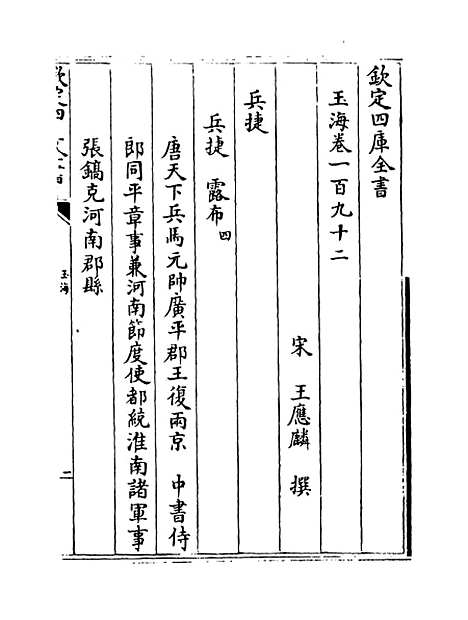 欽定四庫全書
玉海卷一百九十二
宋 王應麟 撰
兵捷
兵捷 露布四
唐天下兵馬元帥廣平郡王復兩京 中書侍
郎同平章事兼河南節度使都統淮南諸軍事
張鎬克河南郡縣
玉海